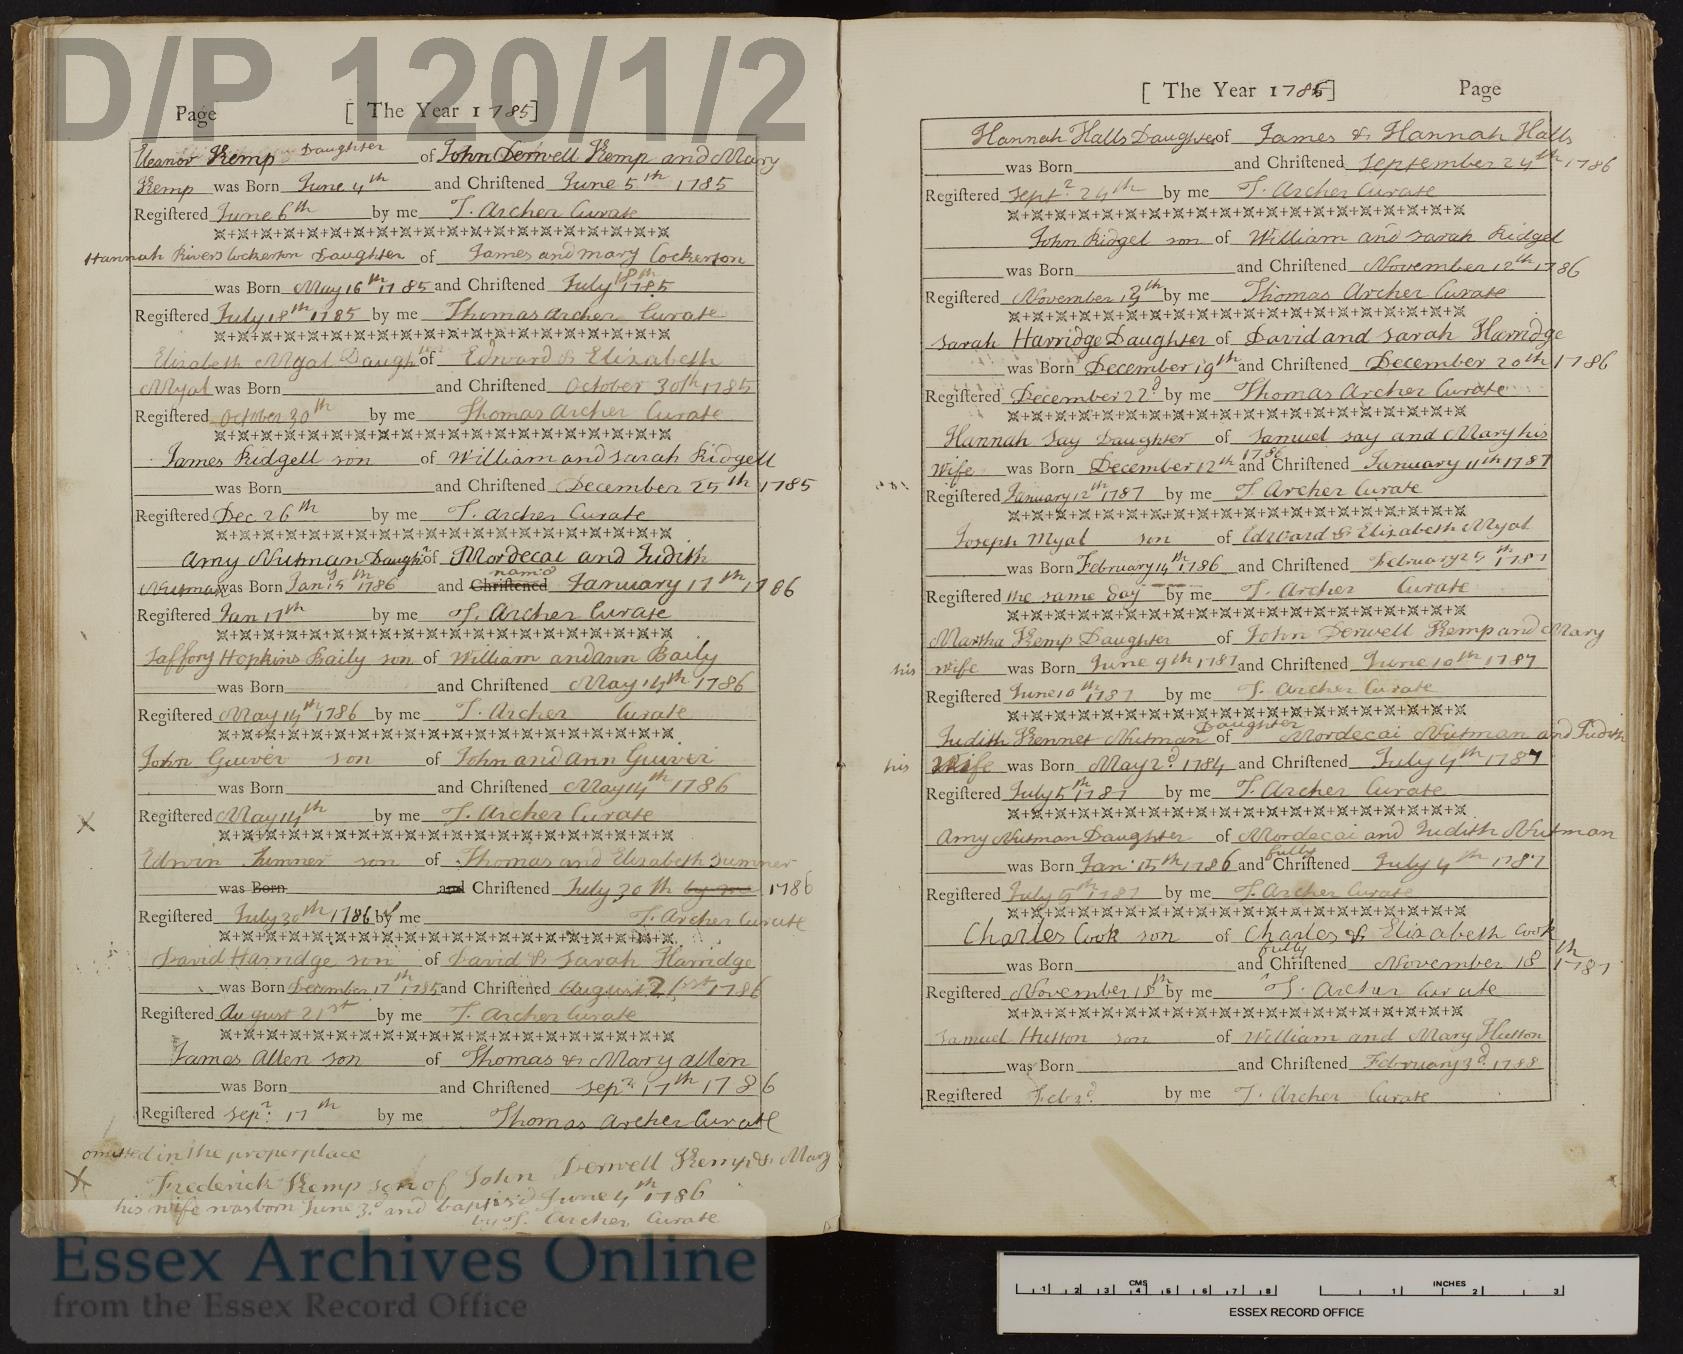 D/P 120/1/2
Page [ The Year 1785]
Eleanor Kemp Daughter of John Derwell Kemp and Mary
Kemp was Born June 4th and Christened June 5th 1785
Registered June 6th by me T. Archer Curate
Hannah Rivers Cockerton Daughter of James and Mary Cockerton
was Born May 16th 1785 and Christened July 18th 1785
Registered July 18th 1785 by me Thomas Archer Curate
Elizabeth Myal Daughtr of Edward & Elizabeth
Myal was Born and Christened October 30th 1785
Registered October 30th by me Thomas Archer Curate
James Ridgell son of William and Sarah Ridgell
was Born and Christened December 25th 1785
Registered Dec 26th by me T. Archer Curate
Amy Nutman Daughr of Mordecai and Judith
Nutman was Born Jany 15th 1786 and Christened named January 17th 1786
Registered Jan 17th by me T. Archer Curate
Saffory Hopkins Baily son of William and ann Baily
was Born and Christened May 14th 1786
Registered May 14th 1786 by me T. Archer Curate
John Guiver son of John and Ann Guiver
was Born and Christened May 14th 1786
Registered May 14th by me T. Archer Curate
Edwin Sumner son of Thomas and Elizabeth Sumner
was Born and Christened July 30th by me 1786
Registered July 30th 1786 by me T. Archer Curate
David Harridge son of David & Sarah Harridge
was Born December 17th 1785 and Christened August 21st 1786
Registered August 21st by me T. Archer Curate
James Allen son of Thomas & Mary allen
was Born and Christened Sepr 17th 1786
Registered Sepr. 17th by me Thomas Archer Curate
omitted in the proper place
Frederick Kemp son of John Derwell Kemp & Mary
his wife was born June 3d and baptis'd June 4th 1786
by T. Archer Curate
[ The Year 1786] Page
Hannah Halls Daughter of James & Hannah Halls
was Born and Christened September 24th 1786
Registered Sept. 24th by me T. Archer Curate
John Ridgel son of William and Sarah Ridgel
was Born and Christened November 12th 1786
Registered November 12th by me Thomas Archer Curate
Sarah Harridge Daughter of David and Sarah Harridge
was Born December 19th and Christened December 20th 1786
Registered December 22d by me Thomas Archer Curate
Hannah Say Daughter of Samuel Say and Mary his
Wife was Born December 12th 1786 and Christened January 11th 1787
Registered January 12th 1787 by me T. Archer Curate
Joseph Myal son of Edward & Elizabeth Myal
was Born February 14th 1786 and Christened February 25th 1787
Registered the same day by me T. Archer Curate
Martha Kemp Daughter of John Derwell Kemp and Mary
his wife was Born June 9th 1787 and Christened June 10th 1787
Registered June 10th 1787 by me T. Archer Curate
Judith Kennet Nutman Daughter of Mordecai Nutman and Judith
his Wife was Born May 2d. 1784 and Christened July 4th 1787
Registered July 5th 1787 by me T. Archer Curate
Amy Nutman Daughter of Mordecai and Judith Nutman
was Born Jan. 15th 1786 and fully Christened July 4th 1787
Registered July 5th 1787 by me T. Archer Curate
Charles Cook son of Charles & Elizabeth Cook
was Born and fully Christened November 18th 1787
Registered November 18th by me T. Archer Curate
Samuel Hutson son of William and Mary Hutson
was Born and Christened February 3d. 1788
Registered by me T. Archer Curate
Essex Archives Online
from the Essex Record Office
CMS
1 2 3 4 5 6 7 8
INCHES
1 2 3
ESSEX RECORD OFFICE